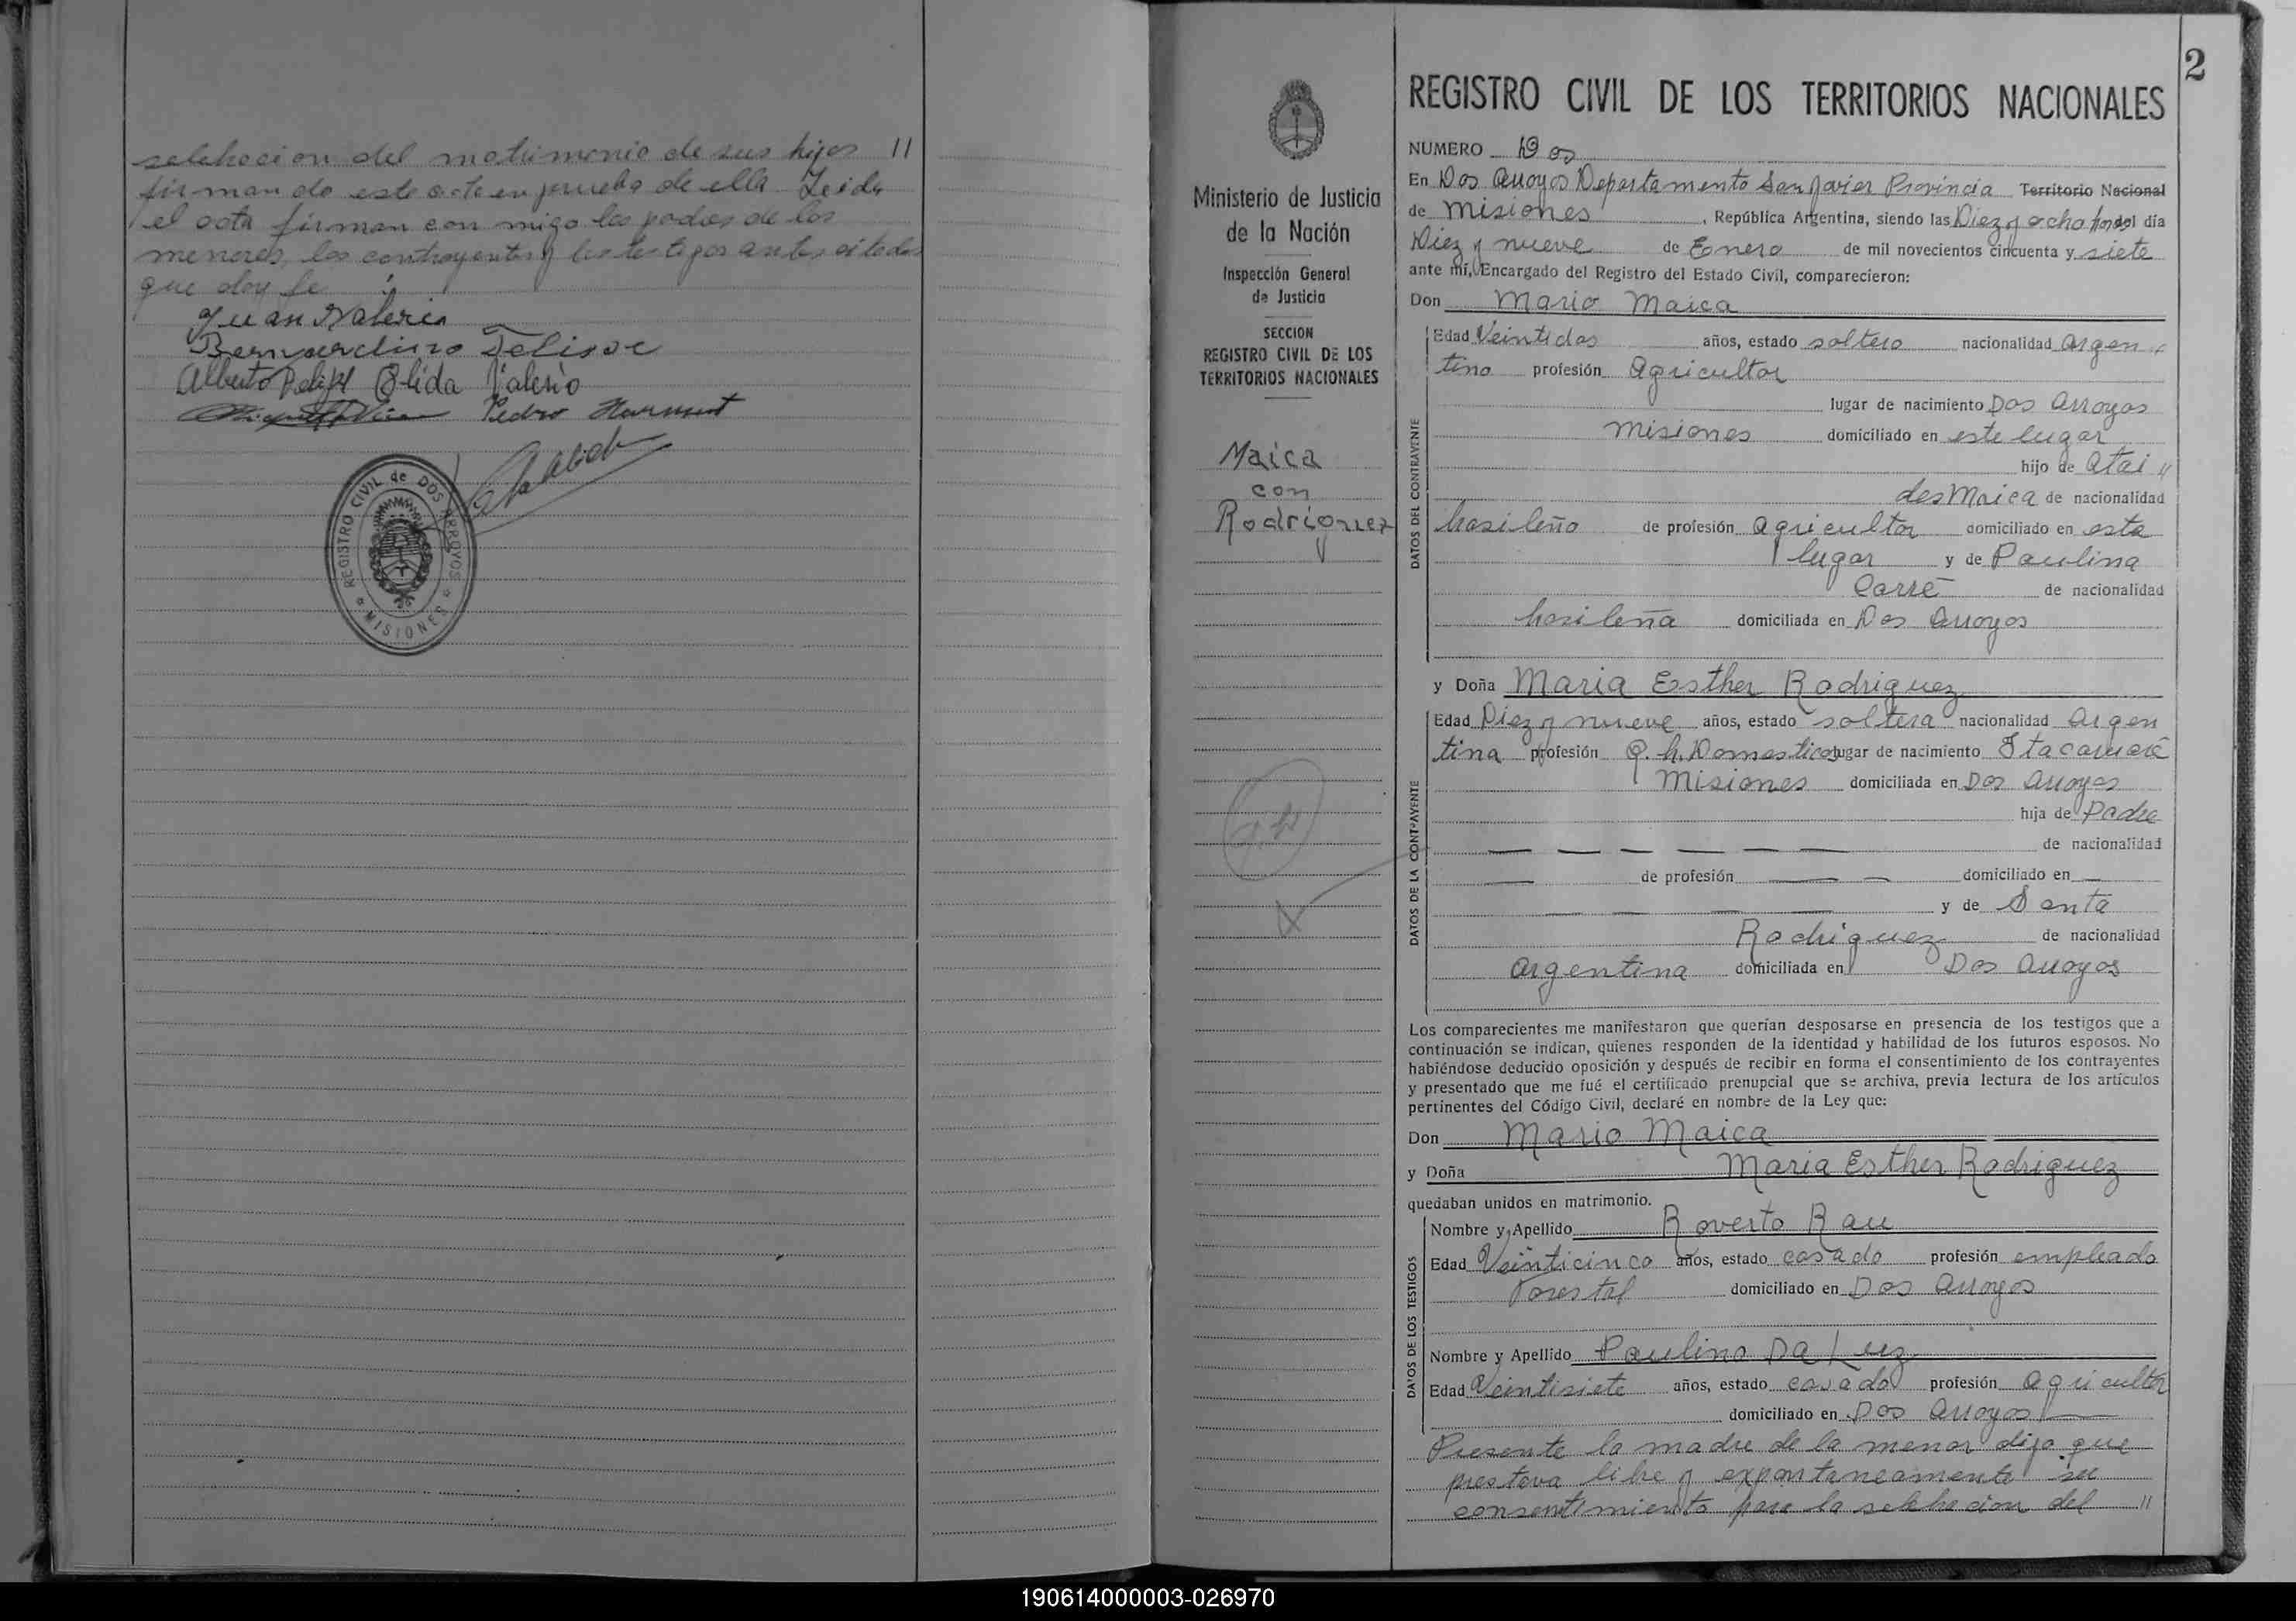 selebracion del matrimonio de sus hijos //
firmando este acto en prueba de ella Leida
el acta firman con migo los padres de los
menores, los contrayentes y los testigos antes citados
que doy fe
Juan Valerio
Bernardino
Alberto Elida Valerio
Pedro
REGISTRO CIVIL de DOS ARROYOS
MISIONES
2
Ministerio de Justicia
de la Nación
Inspección General
de Justicia
SECCION
REGISTRO CIVIL DE LOS
TERRITORIOS NACIONALES
Maica
con
Rodriguez
REGISTRO CIVIL DE LOS TERRITORIOS NACIONALES
NUMERO Dos
En Dos Arroyos Departamento San Javier Provincia Territorio Nacional
de Misiones , República Argentina, siendo las Diez y ocho horas del día
Diez y nueve de Enero de mil novecientos cincuenta y siete
ante mí, Encargado del Registro del Estado Civil, comparecieron:
Don Mario Maica
DATOS DEL CONTRAYENTE
Edad Veintidos años, estado soltero nacionalidad Argen
tino profesión Agricultor
lugar de nacimiento Dos Arroyos
Misiones domiciliado en este lugar
hijo de Atai //
des Maica de nacionalidad
brasileño de profesión Agricultor domiciliado en este
lugar y de Paulina
Carré de nacionalidad
brasileña domiciliada en Dos Arroyos
y Doña Maria Esther Rodriguez
DATOS DE LA CONTRAYENTE
Edad Diez y nueve años, estado soltera nacionalidad Argen
tina profesión Q. h. Domesticos lugar de nacimiento Itacaruaré
Misiones domiciliada en Dos Arroyos
hija de Padre
— — — — — — de nacionalidad
— de profesión — — domiciliado en —
— — — — y de Santa
Rodriguez de nacionalidad
argentina domiciliada en Dos Arroyos
Los comparecientes me manifestaron que querían desposarse en presencia de los testigos que a
continuación se indican, quienes responden de la identidad y habilidad de los futuros esposos. No
habiéndose deducido oposición y después de recibir en forma el consentimiento de los contrayentes
y presentado que me fué el certificado prenupcial que se archiva, previa lectura de los artículos
pertinentes del Código Civil, declaré en nombre de la Ley que:
Don Mario Maica
y Doña Maria Esther Rodriguez
quedaban unidos en matrimonio.
DATOS DE LOS TESTIGOS
Nombre y Apellido Roverto Rau
Edad Veinticinco años, estado casado profesión empleado
Forestal domiciliado en Dos Arroyos
Nombre y Apellido Paulino Da Luz
Edad Veintisiete años, estado casado profesión Agricultor
domiciliado en Dos Arroyos —
Presente la madre de la menor dijo que
prestava libre y expontaneamente su
consentimiento para la selebracion del //
190614000003-026970